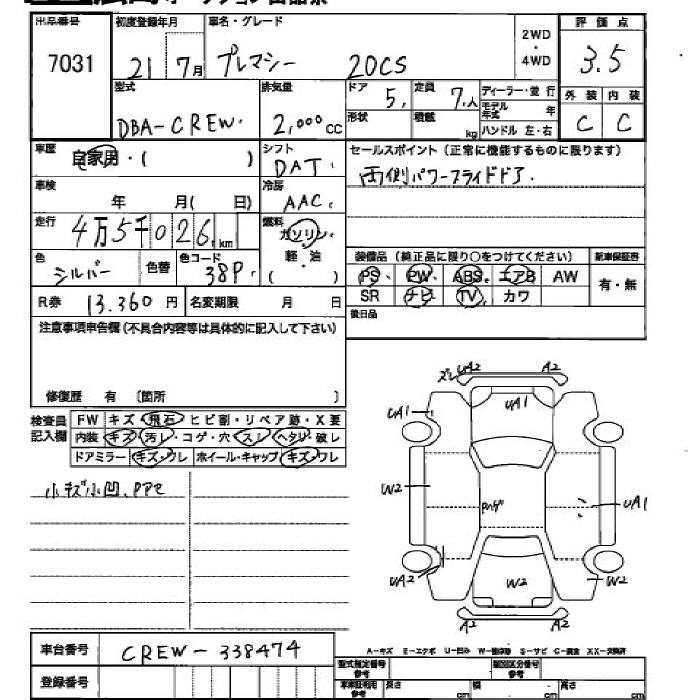 出品番号 初度登録年月 車名・グレード 2WD・4WD 評価点
7031 21 7月 プレマシー 20CS 3.5
型式 排気量 ドア 5, 定員 7,人 ディーラー・並行 外装 内装
DBA-CREW. 2,000cc 形状 積載 kg モデル年式 年 ハンドル 左・右 C C
車歴 自家用・( ) シフト DAT, セールスポイント(正常に機能するものに限ります)
車検 年 月( 日) 冷房 AAC, 両側パワースライドドア.
走行 4万5千026 km 燃料 ガソリン・軽・油 ( )
色 シルバー 色替 色コード 38P. 装備品(純正品に限り○をつけてください) 新車保証書
PS PW ABS エアB AW 有・無
R券 13.360円 名変期限 月 日 SR ナビ TV カワ
注意事項申告欄(不具合内容等は具体的に記入して下さい) 後日品
修復歴 有 〔箇所 〕
検査員記入欄 FW キズ・飛石・ヒビ割・リペア跡・X要
内装 キズ・汚レ・コゲ・穴・スレ・ヘタリ・破レ
ドアミラー キズ・ワレ ホイール・キャップ キズ・ワレ
小キズ小凹. PPモ
ズレ UA2 A2
UA1 UA1
W2 UA1
UA2 W2 W2
A2 A2
A-キズ E-エクボ U-凹み W-補修跡 S-サビ C-腐食 XX-交換済
車台番号 CREW-338474
登録番号
型式指定番号 参考 類別区分番号 参考
長さ cm 幅 cm 高さ cm